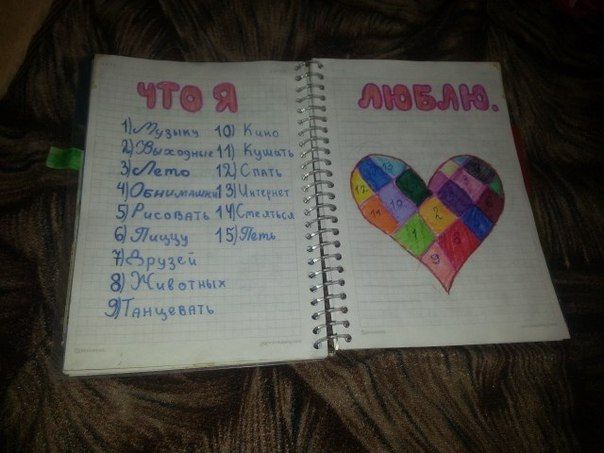 ЧТО Я ЛЮБЛЮ.
1) Музыку 10) Кино
2) Выходные 11) Кушать
3) Лето 12) Спать
4) Обнимашки 13) Интернет
5) Рисовать 14) Смеяться
6) Пиццу 15) Петь
7) Друзей
8) Животных
9) Танцевать
12
11
10
2
1
8
9
13